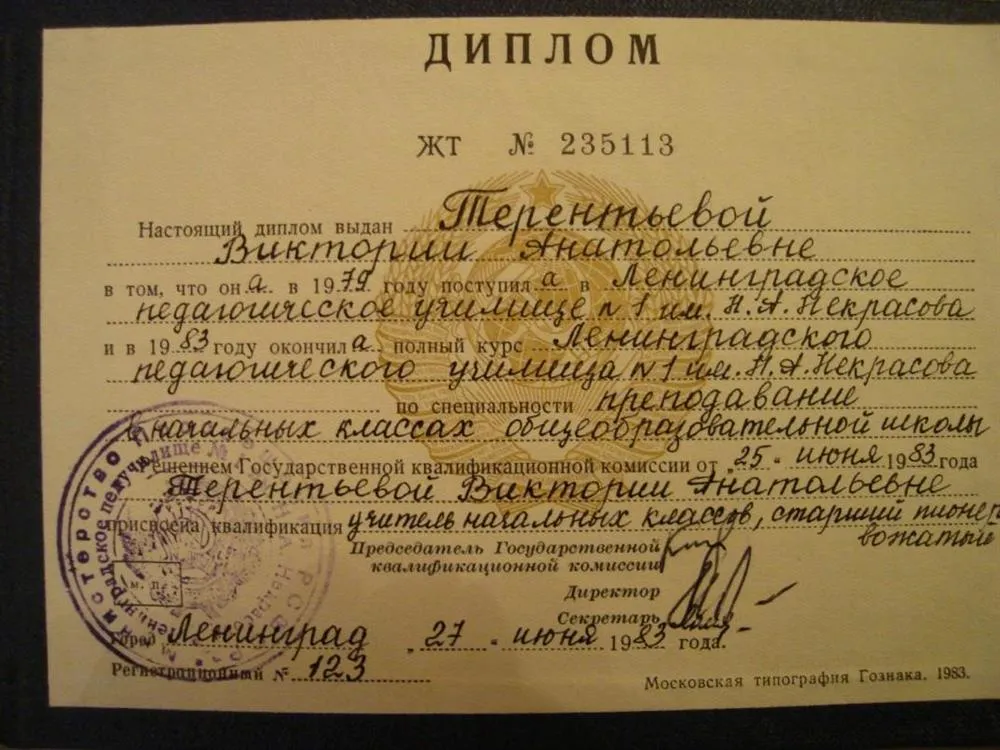 ДИПЛОМ
ЖТ № 235113
Настоящий диплом выдан Терентьевой
Виктории Анатольевне
в том, что она в 1979 году поступила в Ленинградское
педагогическое училище N 1 им. Н. А. Некрасова
и в 1983 году окончила полный курс Ленинградского
педагогического училища N 1 им. Н. А. Некрасова
по специальности преподавание
в начальных классах общеобразовательной школы
Решением Государственной квалификационной комиссии от "25" июня 1983 года
Терентьевой Виктории Анатольевне
присвоена квалификация учитель начальных классов, старший пионер
вожатый
Председатель Государственной
квалификационной комиссии
Директор
Секретарь
М. П.
Город Ленинград "27" июня 1983 года.
Регистрационный № 123
Московская типография Гознака. 1983.